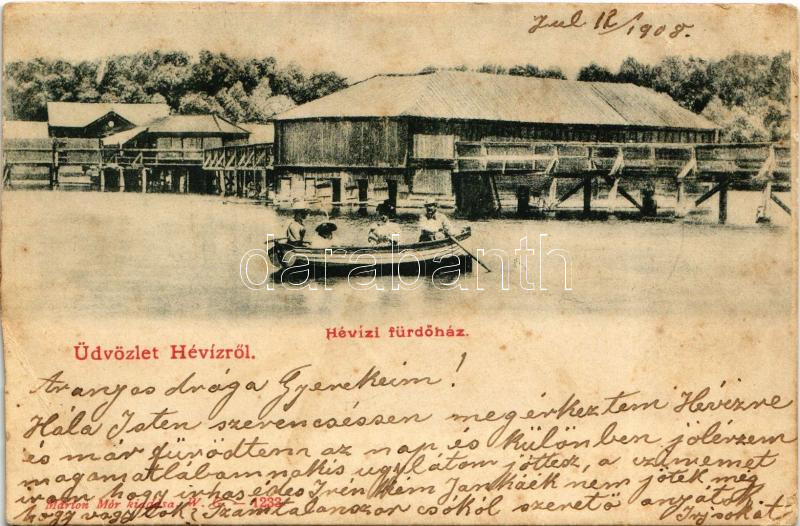 Jul 12/1908.
darabanth
Hévízi fürdőház.
Üdvözlet Hévízről.
Aranyos drága Gyerekeim!
Hála Isten szerencséssen megérkeztem Hévizre
és már fürödtem az nap és külömben jólérzem
magamat lábamnakis ugylátom jóttesz, a
irjon hogy Irén kém Jankáék nem jöttek még
hogy vagytok, Számtalanszor csókól szerető anyátok
Irjsokat
Márton Mór kiadása, W. 1232